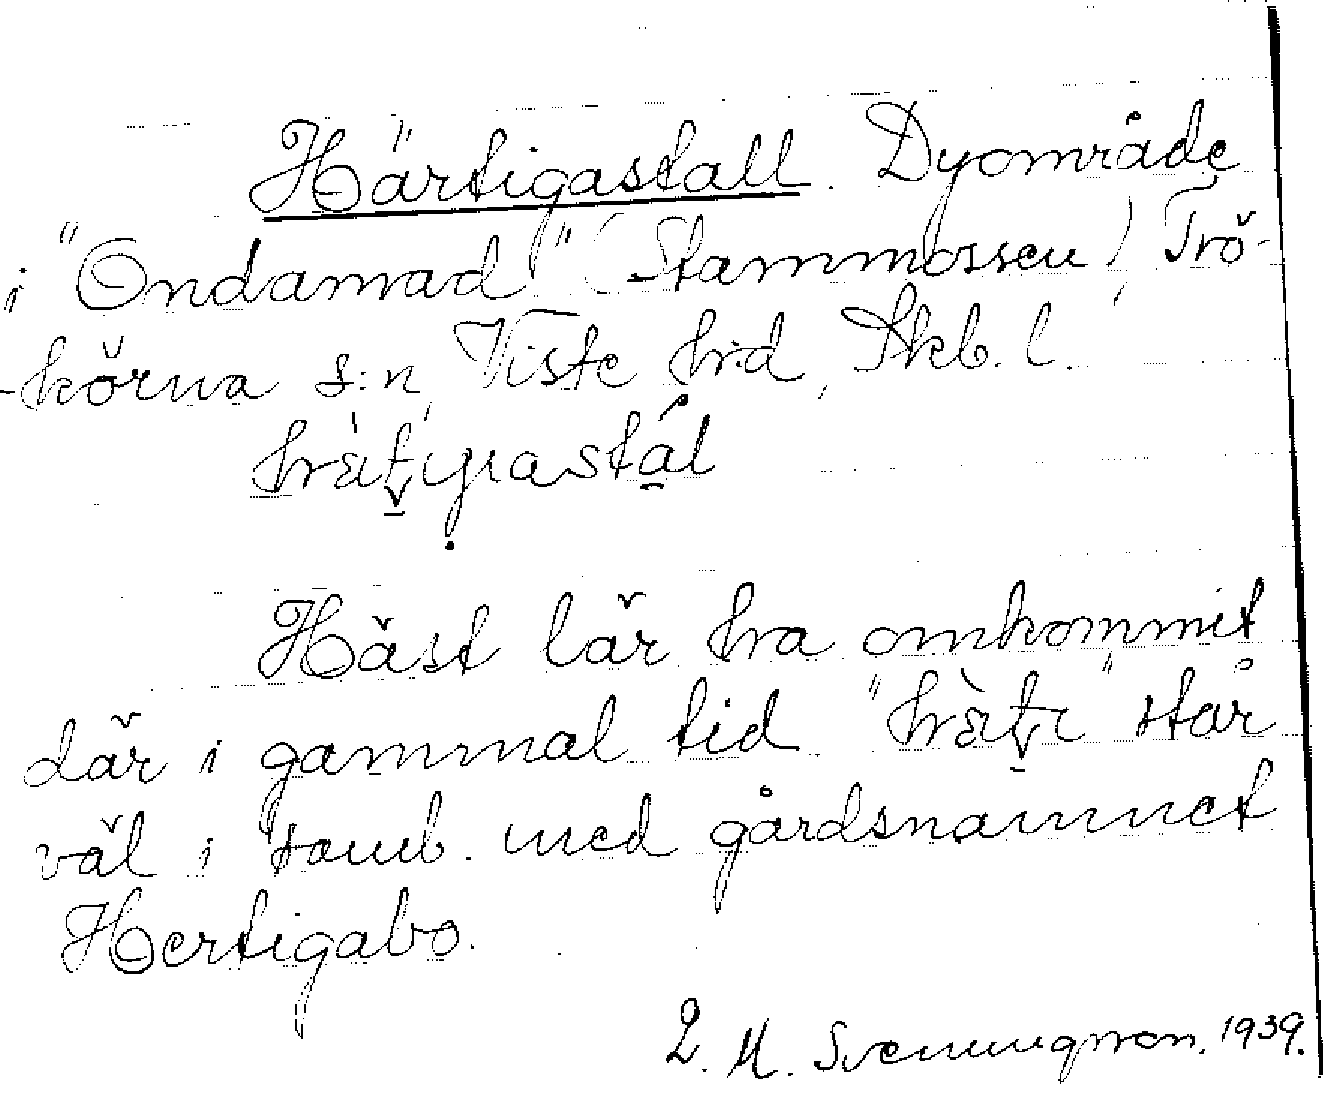 Härtigastall. Dyområde
i "Ondamad" (Stammossen) Trö-
-körna s:n, Viste hrd, Skb. l.
Häst lär ha omkommit
där i gammal tid. " " står
väl i samb. med gårdsnamnet
Hertigabo.
L. M. Svenungsson. 1939.